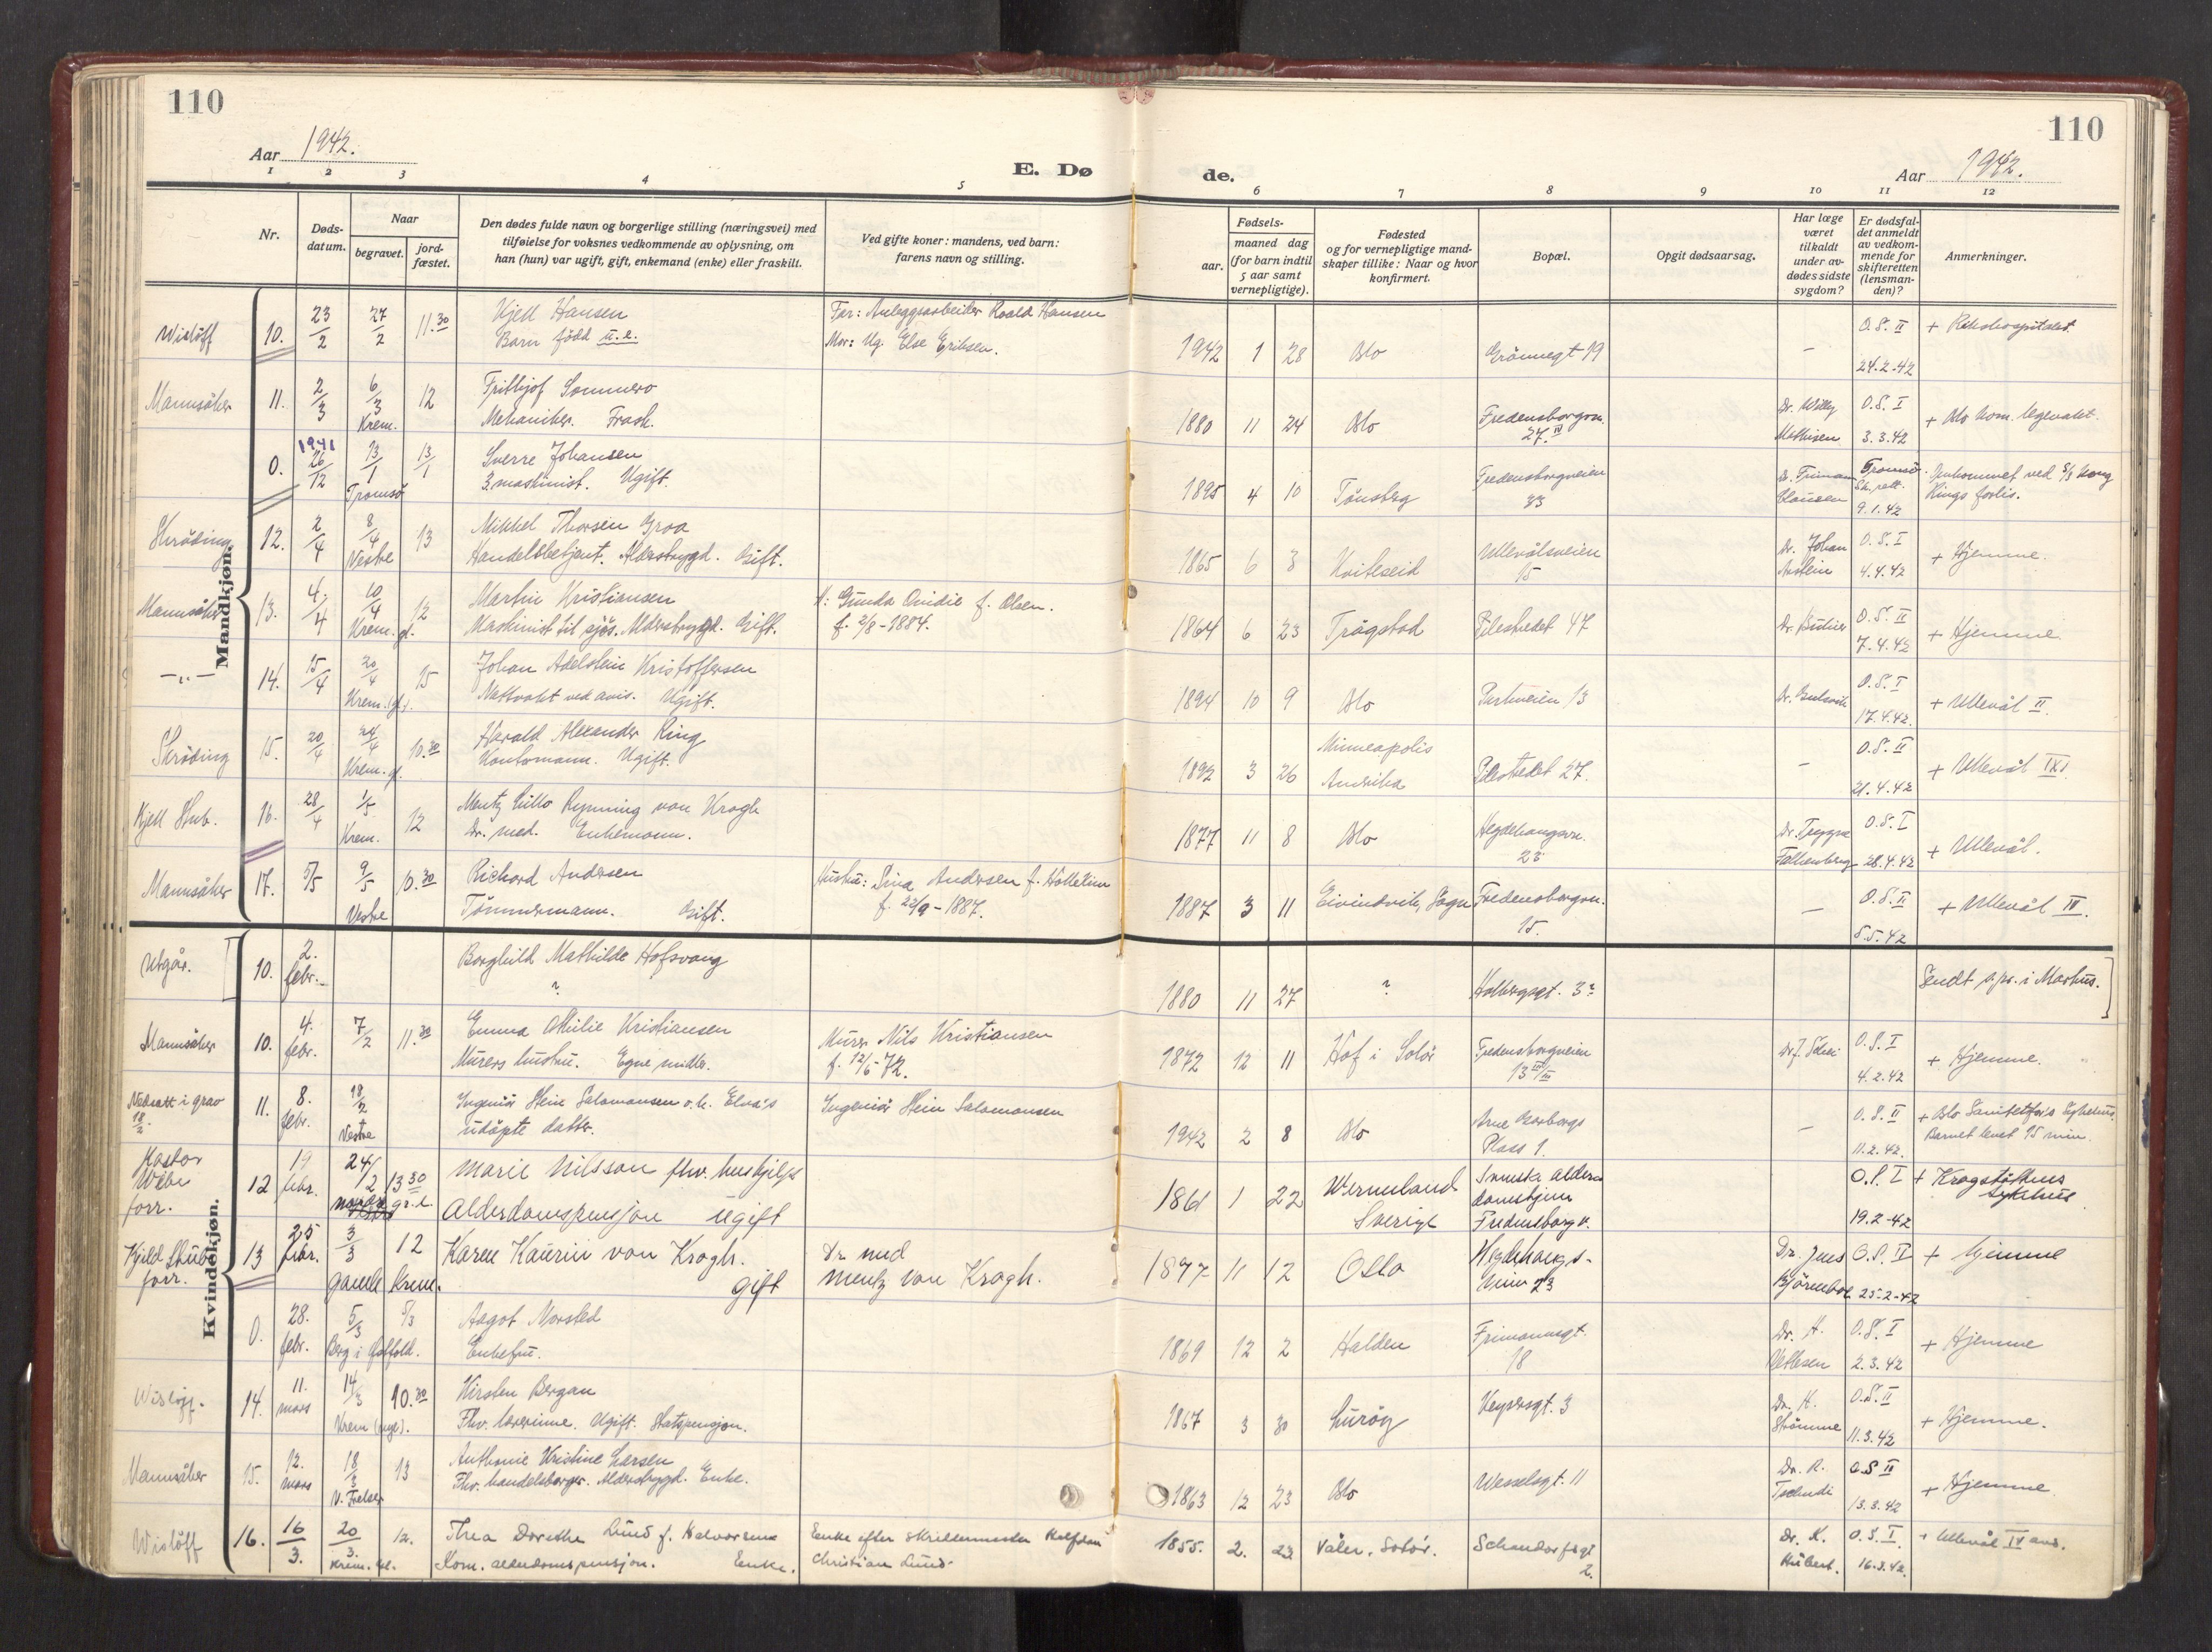 110
110
Aar 1942.
E. Døde.
Aar 1942.
1 2 3 4 5 6 7 8 9 10 11 12
Nr.
Døds-
datum.
Naar
begravet.
jord-
fæstet.
Den dødes fulde navn og borgerlige stilling (næringsvei) med
tilføielse for voksnes vedkommende av oplysning, om
han (hun) var ugift, gift, enkemand (enke) eller fraskilt.
Ved gifte koner: mandens, ved barn:
farens navn og stilling.
Fødsels-
aar.
maaned dag
(for barn indtil
5 aar samt
vernepligtige).
Fødested
og for vernepligtige mand-
skaper tillike: Naar og hvor
konfirmert.
Bopæl.
Opgit dødsaarsag.
Har læge
været
tilkaldt
under av-
dødes sidste
sygdom?
Er dødsfal-
det anmeldt
av vedkom-
mende for
skifteretten
(lensman-
den)?
Anmerkninger.
Mandkjøn.
Wisløff 10. 23/2 27/2 11.30 Kjell Hansen Far: Anleggsarbeider Roald Hansen
Barn född u.e. Mor: Ug. Else Eriksen. 1942 1 28 Oslo Grönnegt 19 – O.S. II 24.2.42 + Rikshospitalet.
Mannsåker 11. 2/3 6/3 Krem. 12 Frithjof Sommero
Mekaniker. Frask. 1880 11 24 Oslo Fredensborgvn. 27 IV Dr. Willy Mathisen O.S. I 3.3.42 + Oslo kom. legevakt.
0. 1941 26/12 13/1 Tromsø 13/1 Sverre Johansen
3. maskinist. Ugift. 1895 4 10 Tönsberg Fredensborgveien 33 Tromsø 9.1.42 Omkommet ved S/S Kong Rings forlis.
Skröding 12. 2/4 8/4 Vestre 13 Mikkel Thorsen Groa
Handelsbetjent. Alderstrygd. Gift. 1865 6 3 Kviteseid Ullevålsveien 15 Dr. Johan O.S. I 4.4.42 + Hjemme.
Mannsåker 13. 4/4 10/4 Krem. gl. 12 Martin Kristiansen H: Gunda Ovidie f. Olsen.
Maskinist til sjös. Alderstrygd. Gift. f. 2/8-1884. 1864 6 23 Trögstad Pilestredet 47 O.S. II 7.4.42 + Hjemme
–„– 14. 15/4 20/4 Krem. (gl.). 15 Johan Adelstein Kristoffersen
Nattvakt ved avis. Ugift. 1894 10 9 Oslo 13 O.S. I 17.4.42. + Ullevål II.
Skröding 15. 20/4 24/4 Krem. gl. 10.30 Harald Alexander Ring
Kontormann. Ugift. 1892 3 26 Minneapolis Amerika Pilestredet 27. – O.S. II 21.4.42 + Ullevål IXI
Kjell Stub. 16. 28/4 1/5 Krem. 12 Mentz Rynning von Krogh
Dr. med. Enkemann. 1877 11 8 Oslo Hegdehaugsvn. 23 Dr. Trygve Falkenberg O.S. I 28.4.42 + Ullevål.
Mannsåker 17. 5/5 9/5 Vestre 10.30 Richard Andersen Hustru: Sina Andersen f. Holtekim
Tömmermann. Gift. f. 22/9-1887. 1887 3 11 Eivindvik, Sogn Fredensborgvn. 15. – O.S. II 8.5.42 + Ullevål IV.
Kvindekjøn.
Utgår. 10. 2. febr. Borghild Mathilde Hofsvang
? 1880 11 27 ? Holbergsgt. 3? Sendt s.pr. i Markus.
Mannsåker 10. 4. febr. 7/2 11.30 Emma Othilie Kristiansen Murer Nils Kristiansen
Murers hustru. Egne midler. f. 12/6-72. 1872 12 11 Hof i Solör Fredensborgveien 13 III O.S. I 4.2.42 + Hjemme.
Nedsatt i grav 18/2 11. 8. febr. 18/2 Vestre Ingeniör Hein Salomonsen o.h. Elva's Ingeniör Hein Salomonsen
udöpte datter. 1942 2 8 Oslo Arne Garborgs Plass 1. – O.S. II 11.2.42. + Oslo Sanitetsfor's Sykehus. Barnet levet 15 min.
Pastor Wibe forr. 12 19 febr. 24/2 nordre gr.l. 13 30 Marie Nilsson fhv. hushjelp
Alderdomspensjon ugift 1861 1 22 Wermland Sverige Svenska alderdomshjem Fredensborgv. O.S. I 19.2-42 + Krogstöttens sykehus
Kjeld Stub forr. 13 25 febr. 3/3 12 gamle krem. Karen Kaurin von Krogh. Dr med
gift Mentz von Krogh. 1877 11 12 Oslo Hegdehaugs-veien 23 Dr. Jens O.S. II 25-2-42 + hjemme
0. 28. febr. 5/3 5/3 Berg i Östfold. Aagot Norsted
Enkefru. 1869 12 2 Halden Frimannsgt. 18 Dr. H. O.S. I 2.3.42 + Hjemme
Wisløff. 14. 11. mars 14/3 10.30 Krem (nye). Kirsten Bergan
Fhv. lærerinne. Ugift. Statspensjon. 1867 3 30 Luröy Keysersgt. 3 Dr. K. Strömme O.S. II 11.3.42 + Hjemme.
Mannsåker 15. 12. mars 18/3 V. Frelser 13 Anthonie Kristine Larsen
Fhv. handelsborger. Alderstrygd. Enke. 1863 12 23 Oslo Wesselsgt. 11 Dr. R. Tschudi O.S II 13.3.42 + Hjemme.
Wisløff 16. 16/3. 20/3. Krem. gl. 12. Thea Dorethe Lund f. Halvorsen Enke efter Skreddermester Halfdan
Kom. alderdomspensjon. Enke. Christian Lund 1855. 2. 23 Våler, Solör. Schandorfsgt 2. Dr. K. O.S. I. 16.3.42. + Ullevål IV avd.